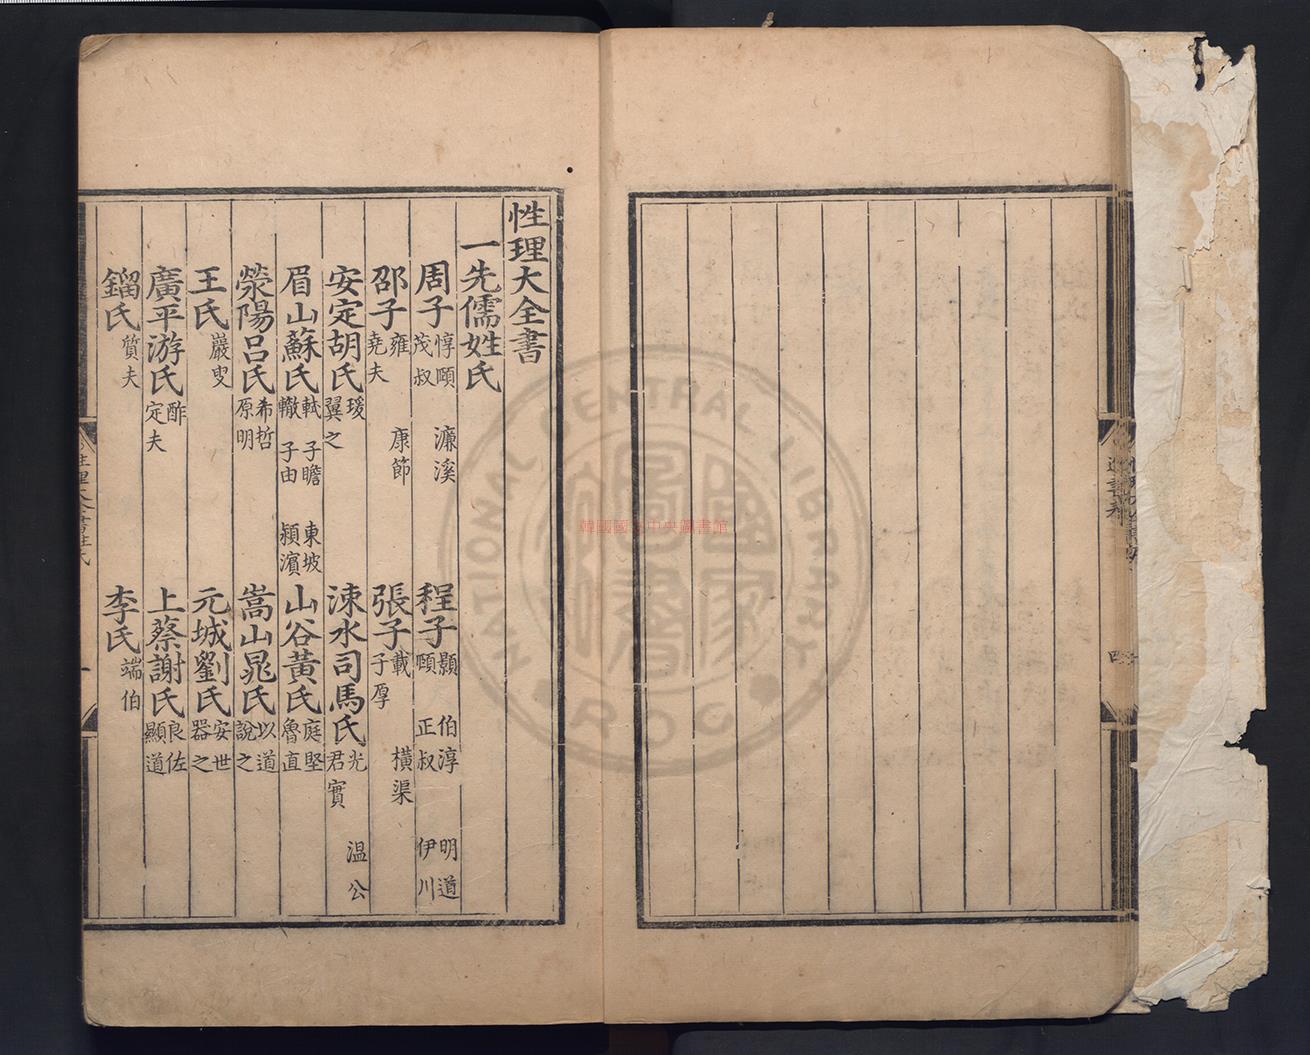 性理大全書
一先儒姓氏
周子 惇頤 茂叔 濂溪 程子 顥 頤 伯淳 正叔 明道 伊川
邵子 雍 堯夫 康節 張子 載 子厚 橫渠
安定胡氏 瑗 翼之 涑水司馬氏 光 君實 温公
眉山蘇氏 軾 轍 子瞻 子由 東坡 潁濱 山谷黃氏 庭堅 魯直
滎陽呂氏 希哲 原明 嵩山晁氏 以道 說之
王氏 巖叟 元城劉氏 安世 器之
廣平游氏 酢 定夫 上蔡謝氏 良佐 顯道
鎦氏 質夫 李氏 端伯
性理大全書姓氏
韓國國立中央圖書館
NATIONAL CENTRAL LIBRARY
ROC